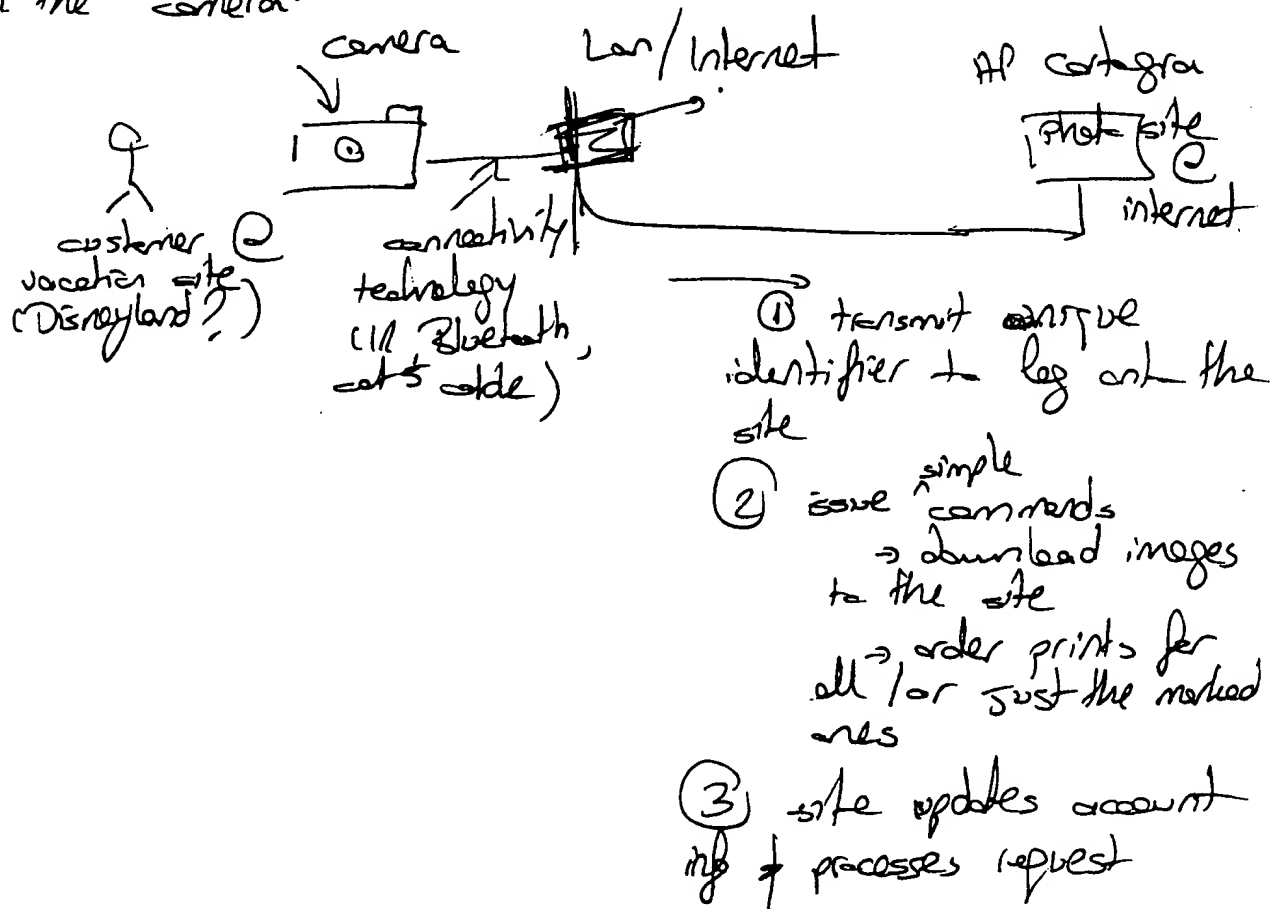 the camera.
camera
Lan/Internet
HP cartogra
photo site
@
internet.
customer @
vacation site
(Disneyland?)
connectivity
technology
(IR Bluetooth,
cat5 cable)
① transmit unique
identifier to log onto the
site
② issue simple commands
→ download images
to the site
→ order prints for
all / or just the marked
ones
③ site updates account
info & processes request